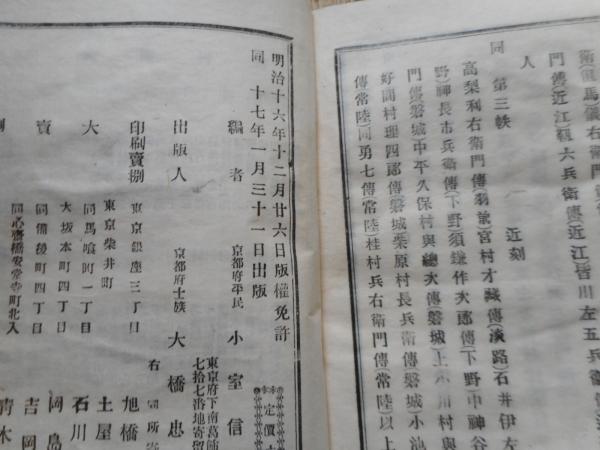 門傳(近江)穎六兵衞傳(近江)皆川左五兵衞傳
人
同 第三帙 近刻
高梨利右衞門傳(羽前)宮村才藏傳(淡路)石井伊左
野)神長市兵衞傳(下野)須鎌作次郎傳(下野)中神谷
門傳(磐城)中平久保村與總次傳(磐城)上小川村與
好間村理四郎傳(磐城)栗原村長兵衞傳(磐城)小池
傳(常陸)同勇七傳(常陸)桂村兵右衞門傳(常陸)以上
明治十六年十二月廿六日版權免許
同 十七年一月三十一日出版
定價
編者 京都府平民 小室信
東京府下南葛飾
七拾七番地寄留
出版人 京都府士族 大橋忠
右同所寄
印刷賣捌 東京銀座三丁目 旭橋
東京柴井町 土屋
大 同馬喰町一丁目 石川
大坂本町四丁目 岡島
賣 同備後町四丁目 吉岡
同心齋橋安堂寺町北入 青木